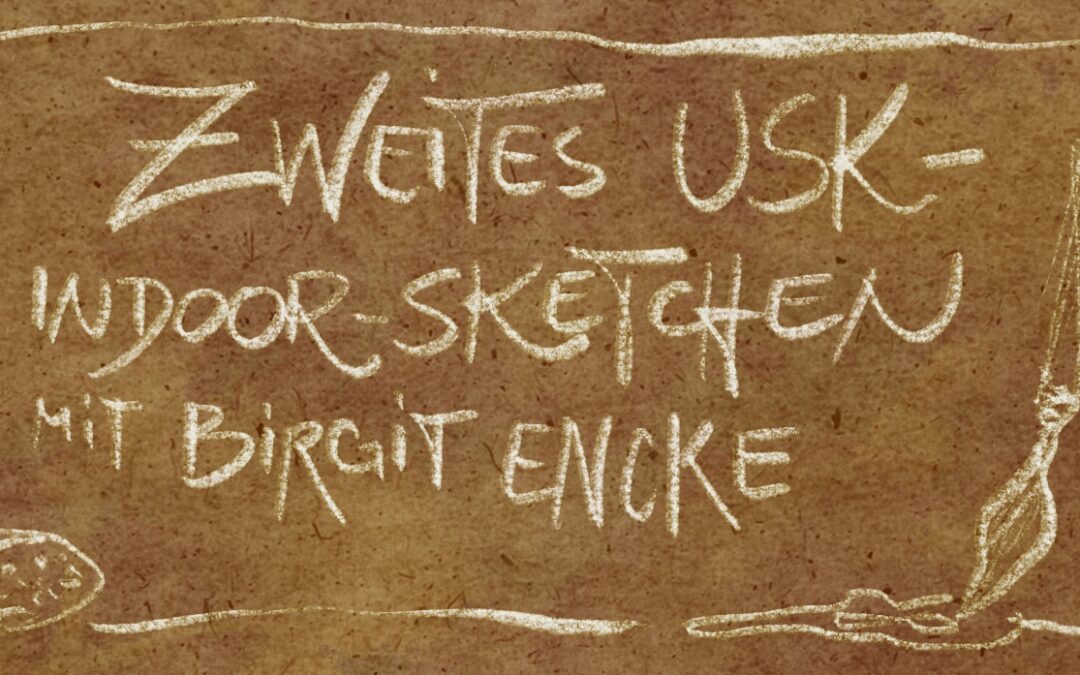 ZWEiTES USK-
INDOOR-SKETCHEN
MiT BiRGiT ENCKE